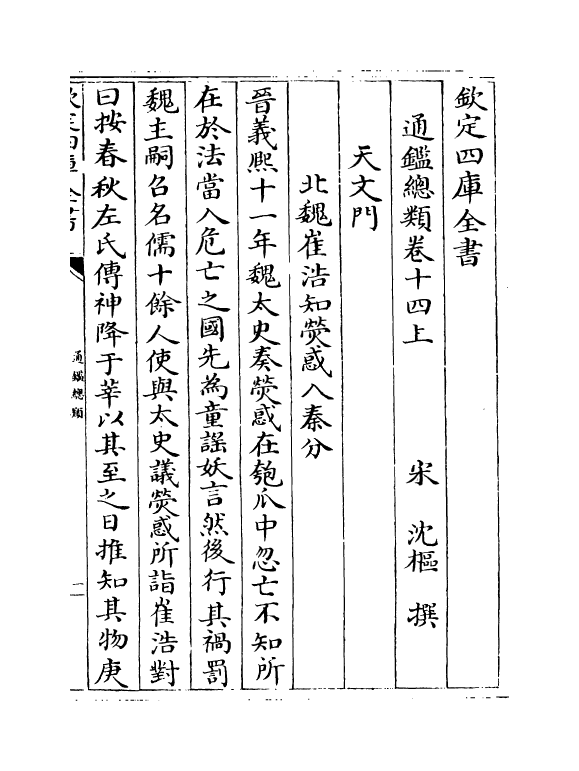 欽定四庫全書
通鑑總類卷十四上
宋 沈樞 撰
天文門
北魏崔浩知熒惑入秦分
晉義熙十一年魏太史奏熒惑在匏瓜中忽亡不知所
在於法當入危亡之國先為童謠妖言然後行其禍罰
魏主嗣召名儒十餘人使與太史議熒惑所詣崔浩對
曰按春秋左氏傳神降于莘以其至之日推知其物庚
通鑑總類